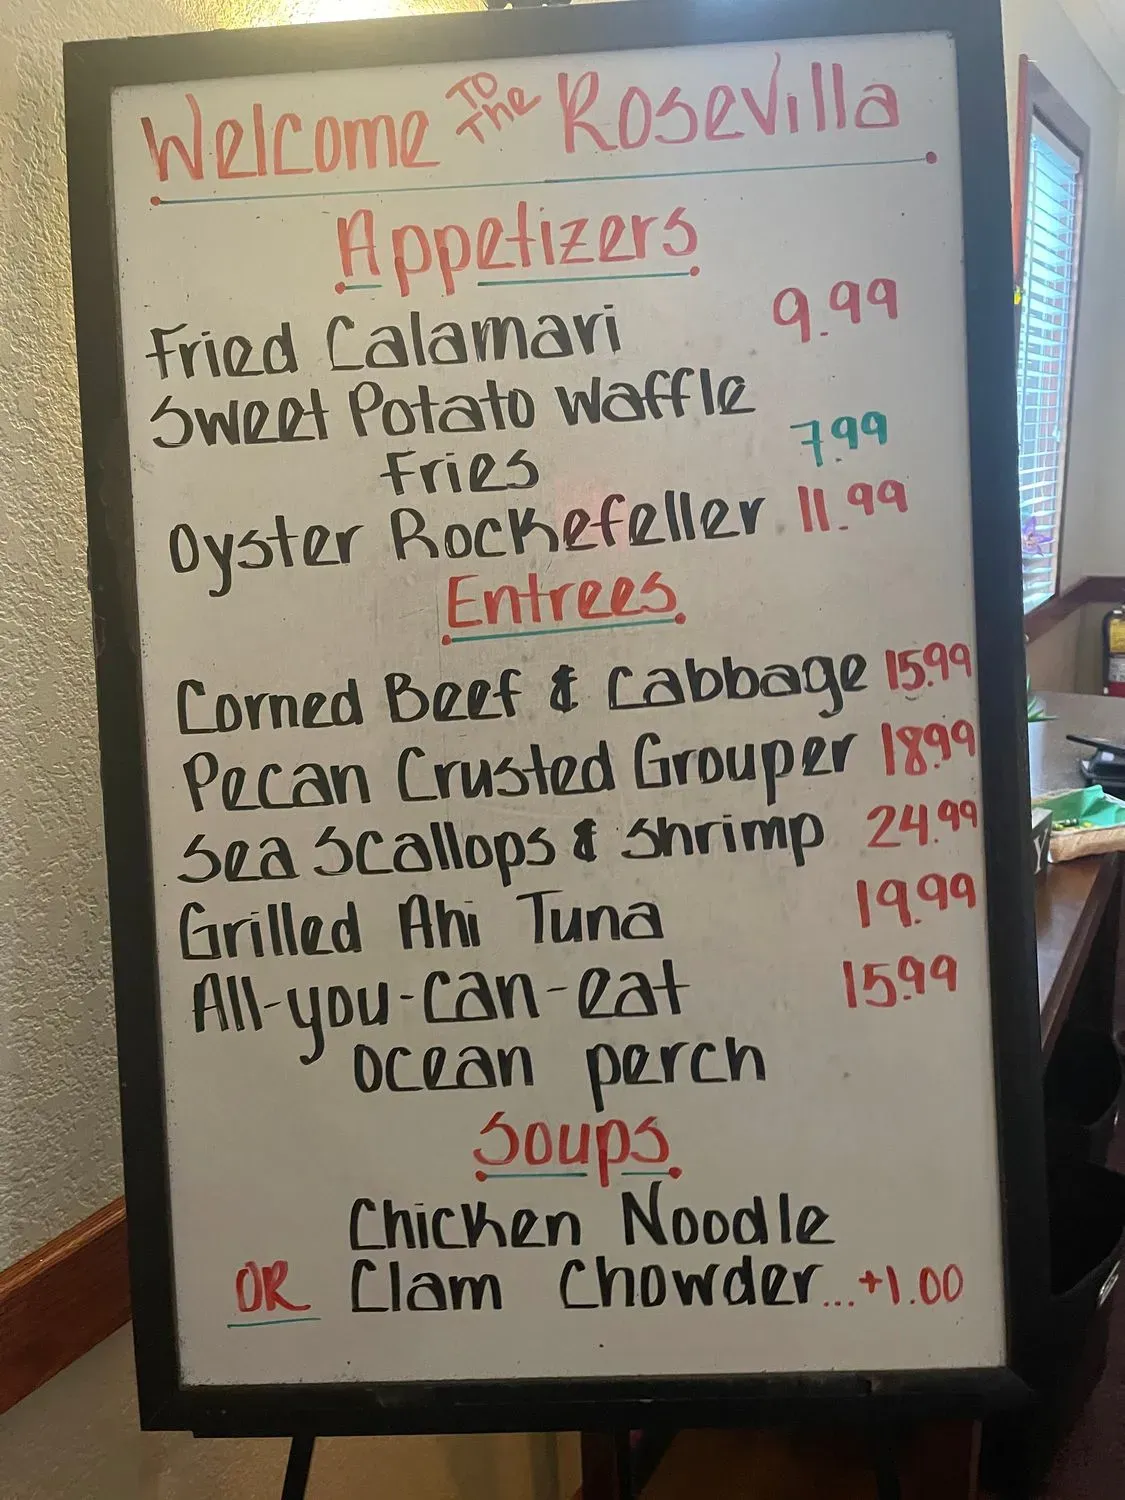 Welcome TO The Rosevilla
Appetizers
Fried Calamari 9.99
Sweet Potato Waffle
Fries 7.99
Oyster Rockefeller 11.99
Entrees
Corned Beef & Cabbage 15.99
Pecan Crusted Grouper 18.99
Sea Scallops & Shrimp 24.99
Grilled Ahi Tuna 19.99
All-you-can-eat 15.99
ocean perch
Soups
Chicken Noodle
OR Clam Chowder...+1.00